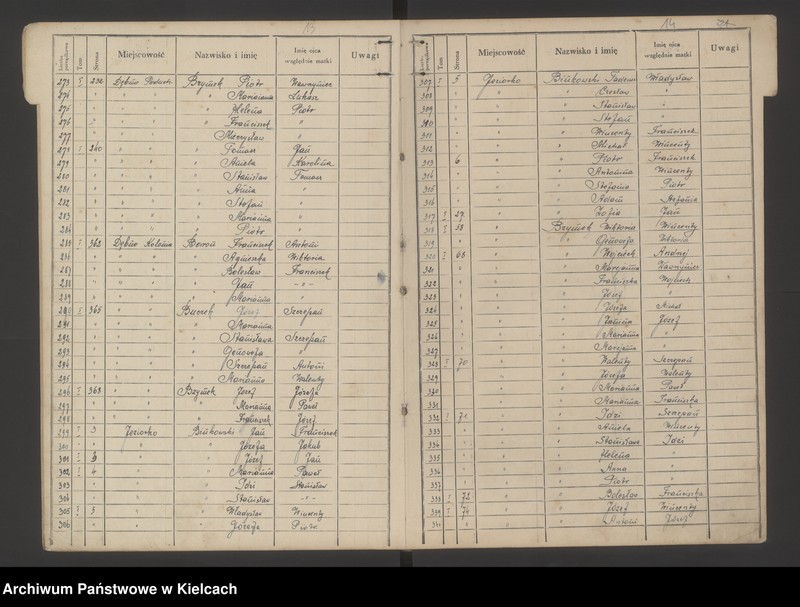 13
Liczba porządkowa Tom Strona Miejscowość Nazwisko i imię Imię ojca względnie matki Uwagi
273 I 232 Bzymek Piotr Wawrzyniec
274 " " " " Marianna Łukasz
275 " " " " Helena Piotr
276 " " " " Franciszek "
277 " " " " Mieczysław "
278 I 240 " " " Tomasz Jan
279 " " " " Aniela Karolina
280 " " " " Stanisław Tomasz
281 " " " " Anna "
282 " " " " Stefan "
283 " " " " Marianna "
284 " " " " Piotr "
285 I 362 Dębno Kolonia Baran Franciszek Antoni
286 " " " " Agnieszka Wiktoria
287 " " " " Bolesław Franciszek
288 " " " " Jan -"-
289 " " " " Marianna "
290 I 365 " " Buczek Józef Szczepan
291 " " " " Marianna "
292 " " " " Stanisława Szczepan
293 " " " " Genowefa "
294 " " " " Szczepan Antoni
295 " " " " Marianna Walenty
296 I 368 " " Bzymek Józef Józefa
297 " " " " Marianna Paweł
298 " " " " Franciszek Józef
299 I 3 Jeziorko Bińkowski Jan Franciszek
300 " " " Józefa Jakub
301 I " " Józef Jan
302 I 4 " " Marianna Paweł
303 " " " Idzi Stanisław
304 " " " Stanisław -"-
305 I 5 " " Władysław Wincenty
306 " " " Józefa Piotr
14
Liczba porządkowa Tom Strona Miejscowość Nazwisko i imię Imię ojca względnie matki Uwagi
307 I 5 Jeziorko Bińkowski Tadeusz Władysław
308 " " " Czesław "
309 " " " Stanisław "
310 " " " Stefan "
311 " " " Wincenty Franciszek
312 " " " Michał Wincenty
313 6 " " Piotr Franciszek
314 " " " Antonina Wincenty
315 " " " Stefania Piotr
316 " " " Adam Stefania
317 I 27 " " Zofia Jan
318 I 58 " Bzymek Wiktoria Wincenty
319 " " " Genowefa Wiktoria
320 I 68 " " Wojciech Andrzej
321 " " " Marjanna Wawrzyniec
322 " " " Franciszka Wojciech
323 " " " Józef "
324 " " " Józefa Michał
325 " " " Janina Józef
326 " " " Marianna "
327 " " " Marjanna "
328 I 70 " " Walenty Szczepan
329 " " " Józefa Walenty
330 " " " Marianna Paweł
331 " " " Marianna Franciszka
332 I 71 " " Idzi Szczepan
333 " " " Aniela Wincenty
334 " " " Stanisław Idzi
335 " " " Helena "
336 " " " Anna "
337 " " " Piotr "
338 I 72 " " Bolesław Franciszka
339 I 74 " " Józef Wincenty
340 " " " Antoni Józef
Archiwum Państwowe w Kielcach